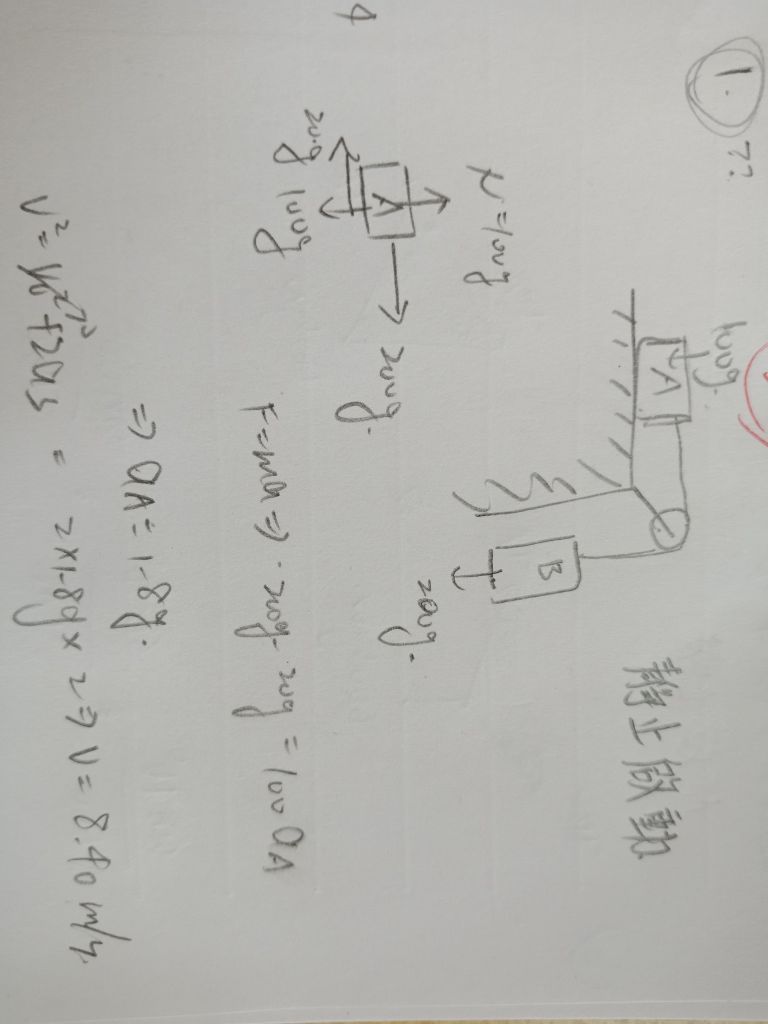 1. ??
100g.
A
B
200g.
静止啟動
N=100g
A
200g.
20g
100g
F=ma ⇒ 200g-20g=100aA
⇒ aA=1.8g.
V²=V₀²+2as = 2×1.8g×2⇒V=8.40m/s.